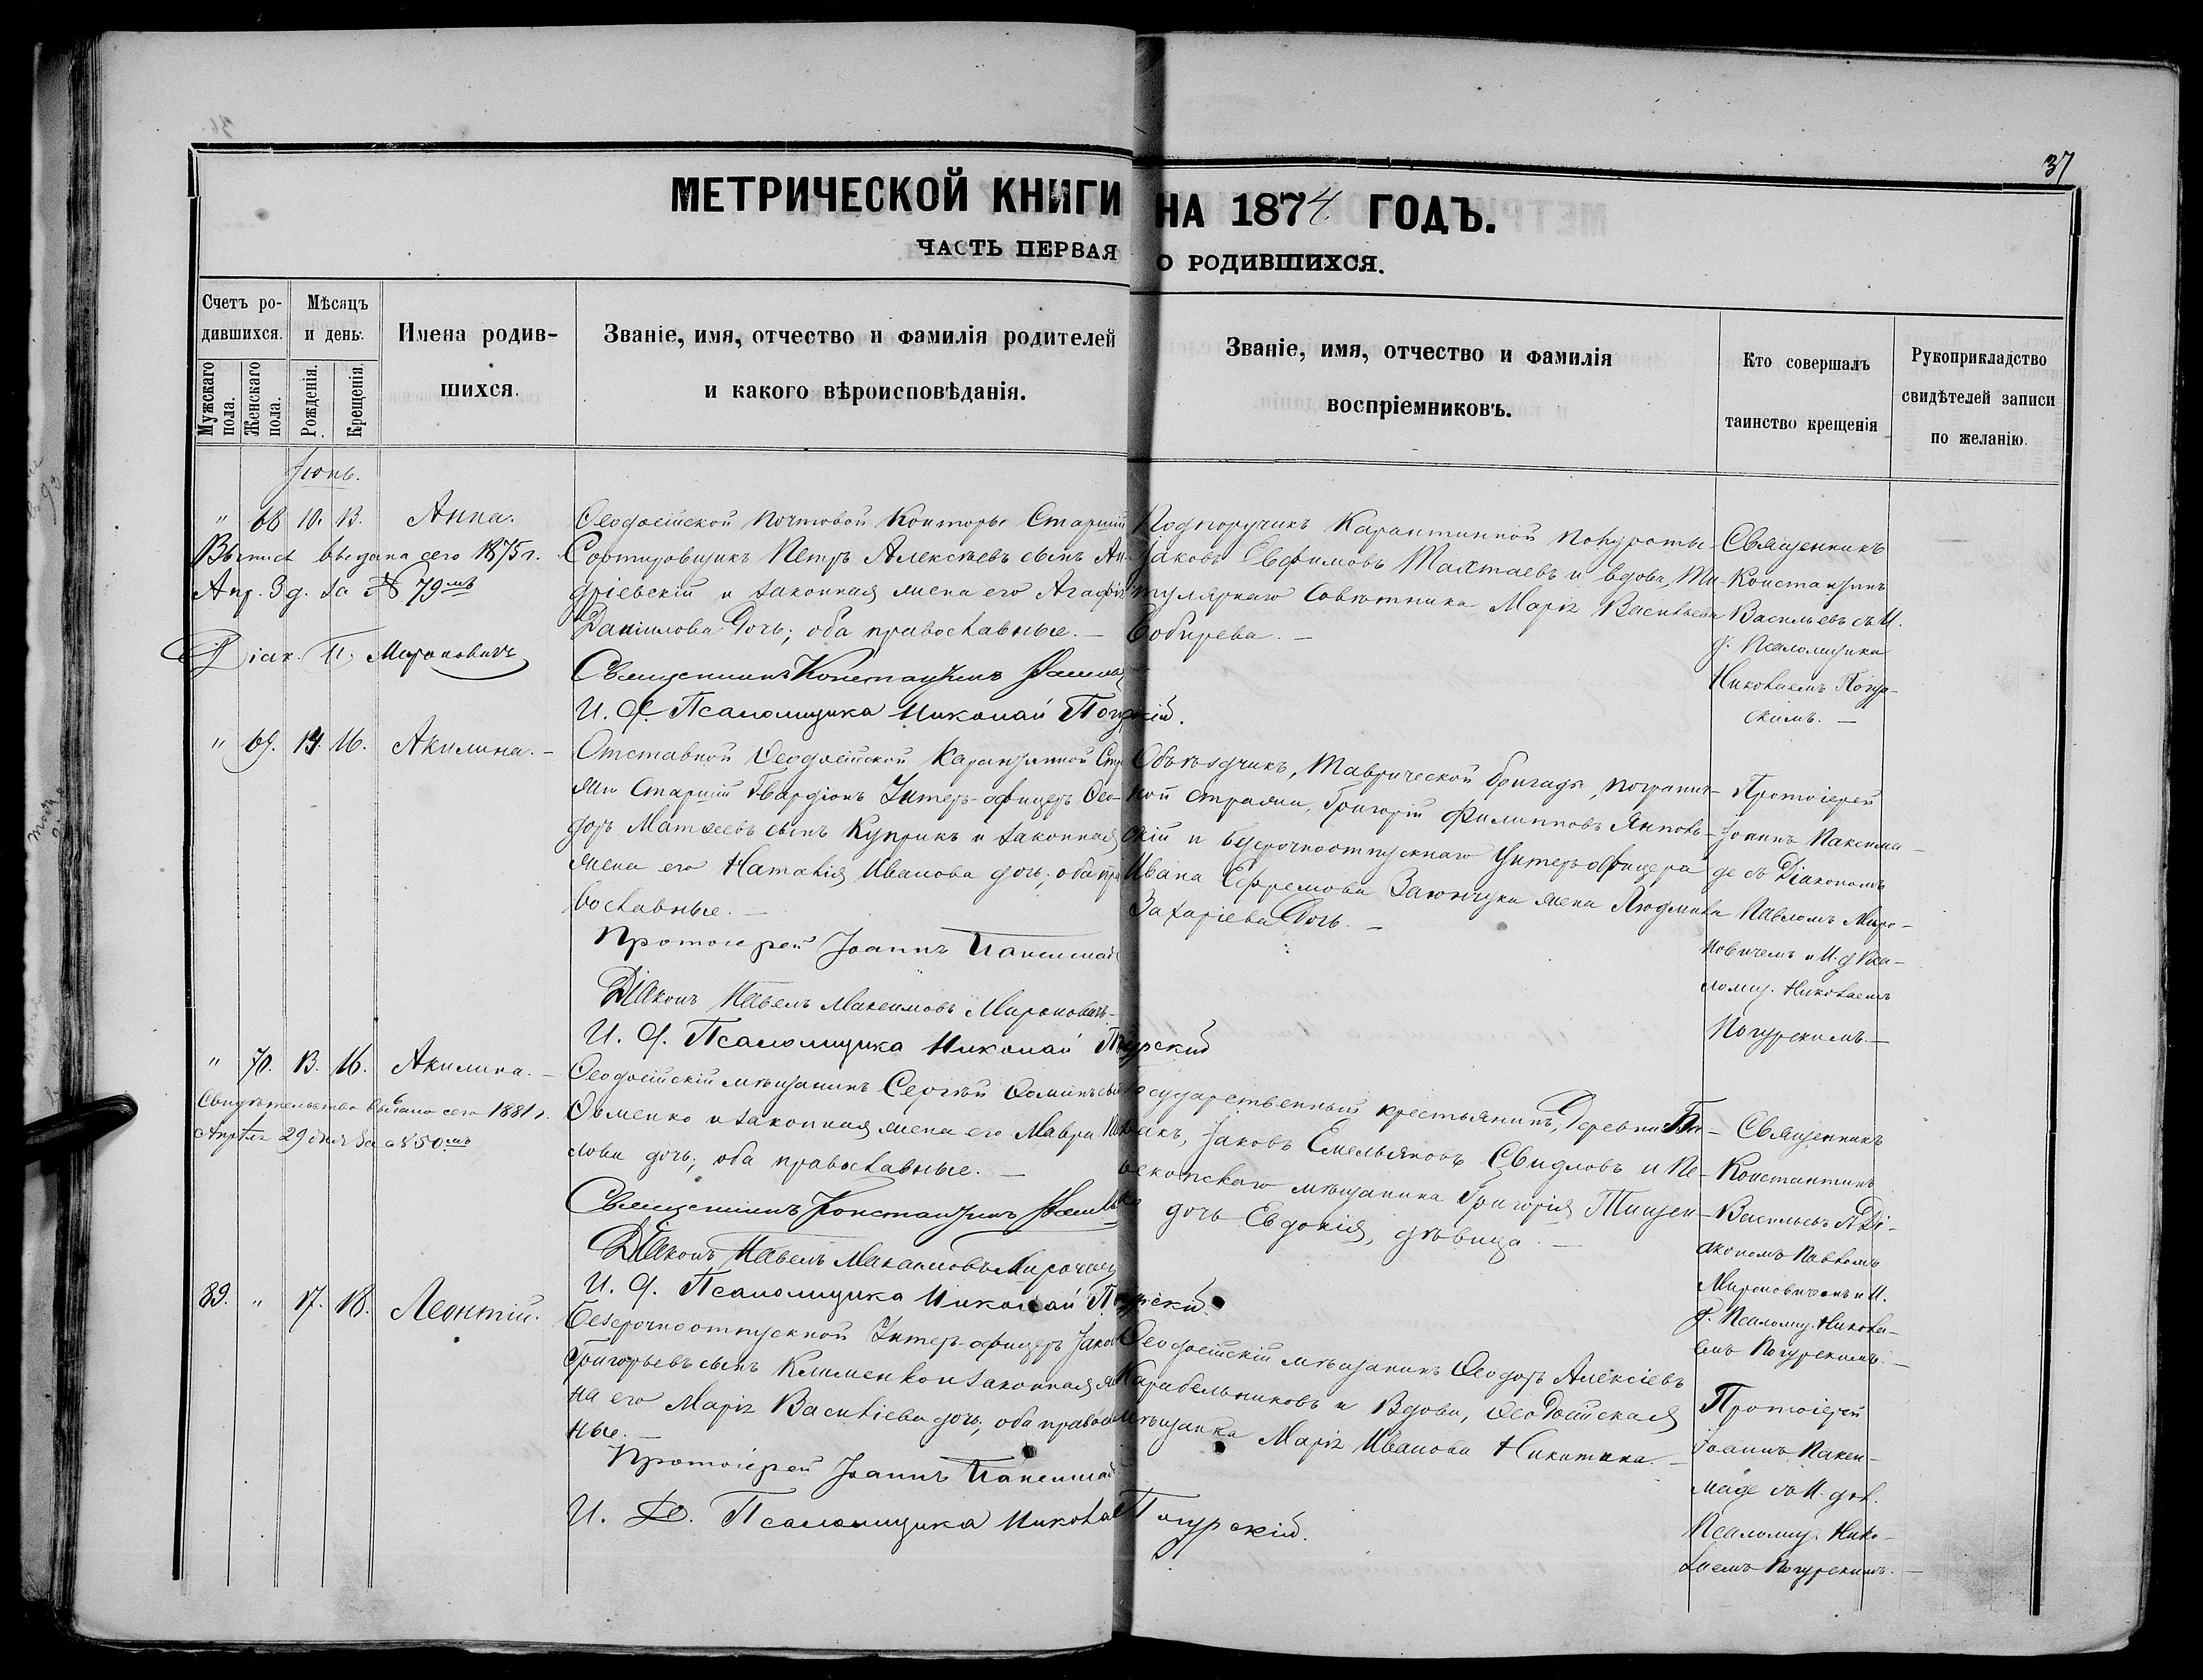 37
МЕТРИЧЕСКОЙ КНИГИ НА 1874 ГОДЪ.
ЧАСТЬ ПЕРВАЯ О РОДИВШИХСЯ.
Счетъ родившихся.
Мужскаго пола.
Женскаго пола.
Мѣсяцъ и день.
Рожденія.
Крещенія.
Имена родившихся.
Званіе, имя, отчество и фамилія родителей
и какого вѣроисповѣданія.
Званіе, имя, отчество и фамилія
воспріемниковъ.
Кто совершалъ
таинство крещенія
Рукоприкладство
свидѣтелей записи
по желанію.
Іюнь.
" 68 10. 13. Анна.
Выпись выдана сего 1875 г.
Апр. 3 д. за № 79мъ
Діак. П. Мироновичъ
Ѳеодосійской Почтовой Конторы Старшій
Сортировщикъ Петръ Алексѣевъ сынъ Ан-
дріевскій и законная жена его Агафія
Даніилова дочь; оба православные. —
Священникъ Константинъ
И. д. Псаломщика Николай Погурскій.
Подпоручикъ Карантинной полуроты
Іаковъ Евфимовъ Талтаевъ и вдова, Ти-
тулярнаго Совѣтника Марія Васильева
Бобырева. —
Священникъ
Константинъ
Васильевъ съ И.
д. Псаломщика
Николаемъ Погур-
скимъ. —
" 69. 14. 16. Акилина. —
Отставной Ѳеодосійской Карантинной Стра
жи Старшій Гвардіонъ Унтеръ-офицеръ Ѳео-
доръ Матѳеевъ сынъ Куприкъ и законная
жена его Наталія Иванова дочь; оба пра
вославные. —
Протоіерей Іоаннъ Паксимаде
Діаконъ Павелъ Максимовъ Мироновичъ
И. д. Псаломщика Николай Погурскій
Объѣздчикъ, Таврической бригады, погранич-
ной стражи, Григорій Филипповъ Янков-
скій и безсрочноотпускнаго Унтеръ офицера
Ивана Ефремова жена Людмила
Захаріева Дочь. —
Протоіерей
Іоаннъ Паксима-
де съ Діакономъ
Павломъ Миро-
новичемъ и И. д. Пса-
ломщ. Николаемъ
Погурскимъ. —
" 70. 13. 16. Акилина. —
Свидѣтельство выдано сего 1881 г.
Апрѣля 29 дня за № 50мъ
Ѳеодосійскій мѣщанинъ Сергѣй Ѳоминъ сынъ
и законная жена его Мавра
лова дочь; оба православные. —
Священникъ Константинъ
Діаконъ Павелъ Максимовъ Мироновичъ
И. д. Псаломщика Николай Погурскій.
Государственный крестьянинъ, Деревни
Іаковъ Емельяновъ Свидловъ и Пе-
рекопскаго мѣщанина Григорія Тищен-
ко дочь Евдокія, дѣвица. —
Священникъ
Константинъ
Васильевъ съ Ді-
акономъ Павломъ
Мироновичемъ и И.
д. Псаломщ. Никола-
емъ Погурскимъ. —
89. " 17. 18. Леонтій.
Безсрочноотпускной Унтеръ-офицеръ Іаковъ
Григорьевъ сынъ Клименко и законная же
на его Марія Василіева дочь; оба православ
ные. —
Протоіерей Іоаннъ Паксимаде
И. Д. Псаломщика Николай Погурскій.
Ѳеодосійскій мѣщанинъ Ѳеодоръ Алексіевъ
Карабельниковъ и Вдова, Ѳеодосійская
мѣщанка Марія Иванова Никитина. —
Протоіерей
Іоаннъ Пакси-
маде съ И. дол.
Псаломщ. Нико-
лаемъ Погурскимъ. —